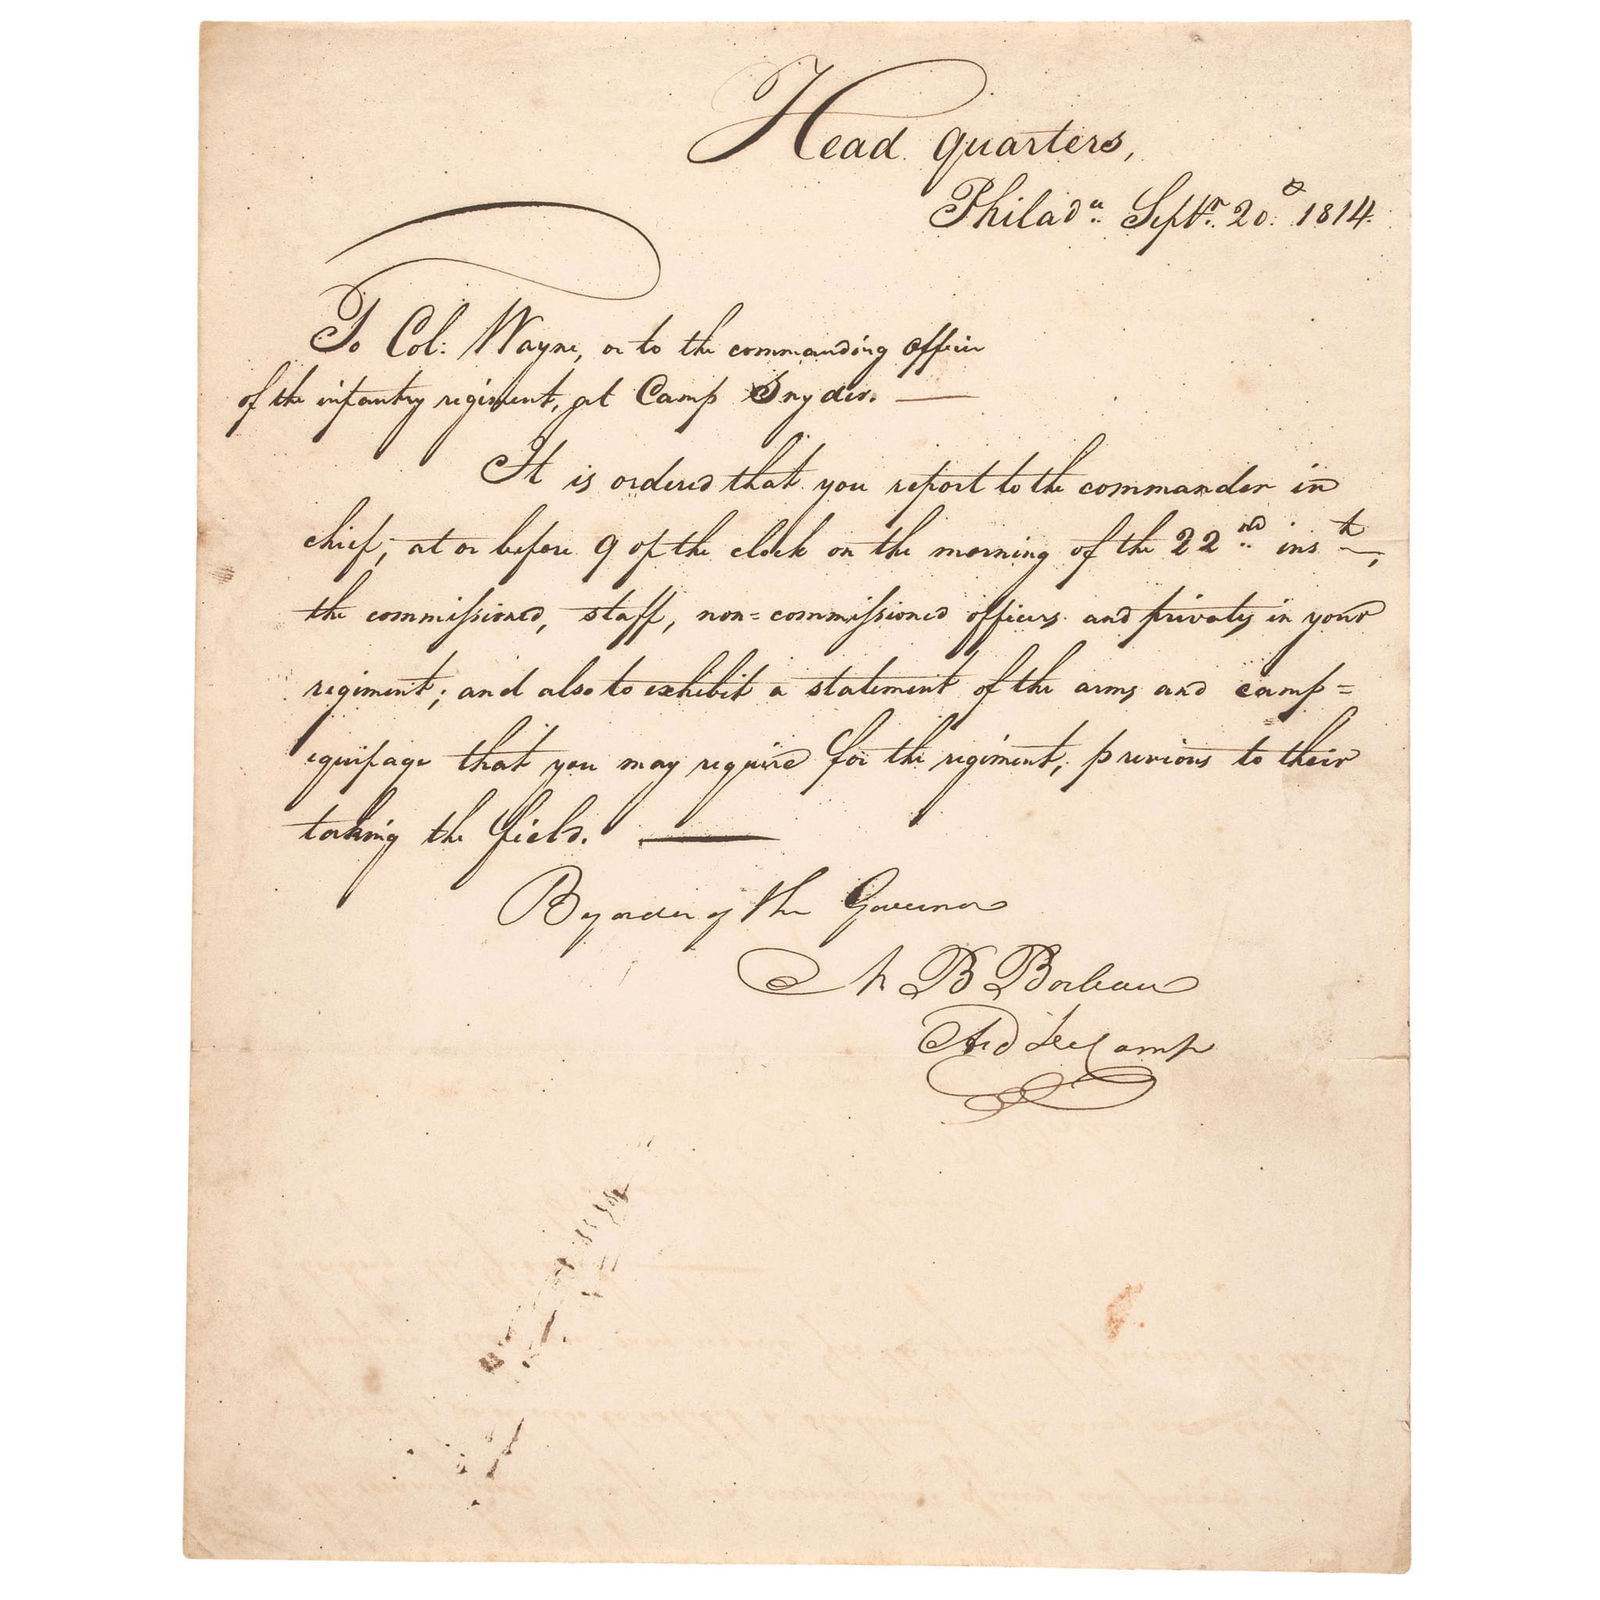 Head quarters,
Philada. Septr. 20. 1814.
To Col: Wayne, or to the commanding officer
of the infantry regiment, at Camp Snyder. —
It is ordered that you report to the commander in
chief, at or before 9 of the clock on the morning of the 22nd inst,
the commissioned, staff, non=commissioned officers and privates in your
regiment; and also to exhibit a statement of the arms and camp=
equipage that you may require for the regiment, previous to their
taking the field. —
By order of the Governor
B
Aid De Camp